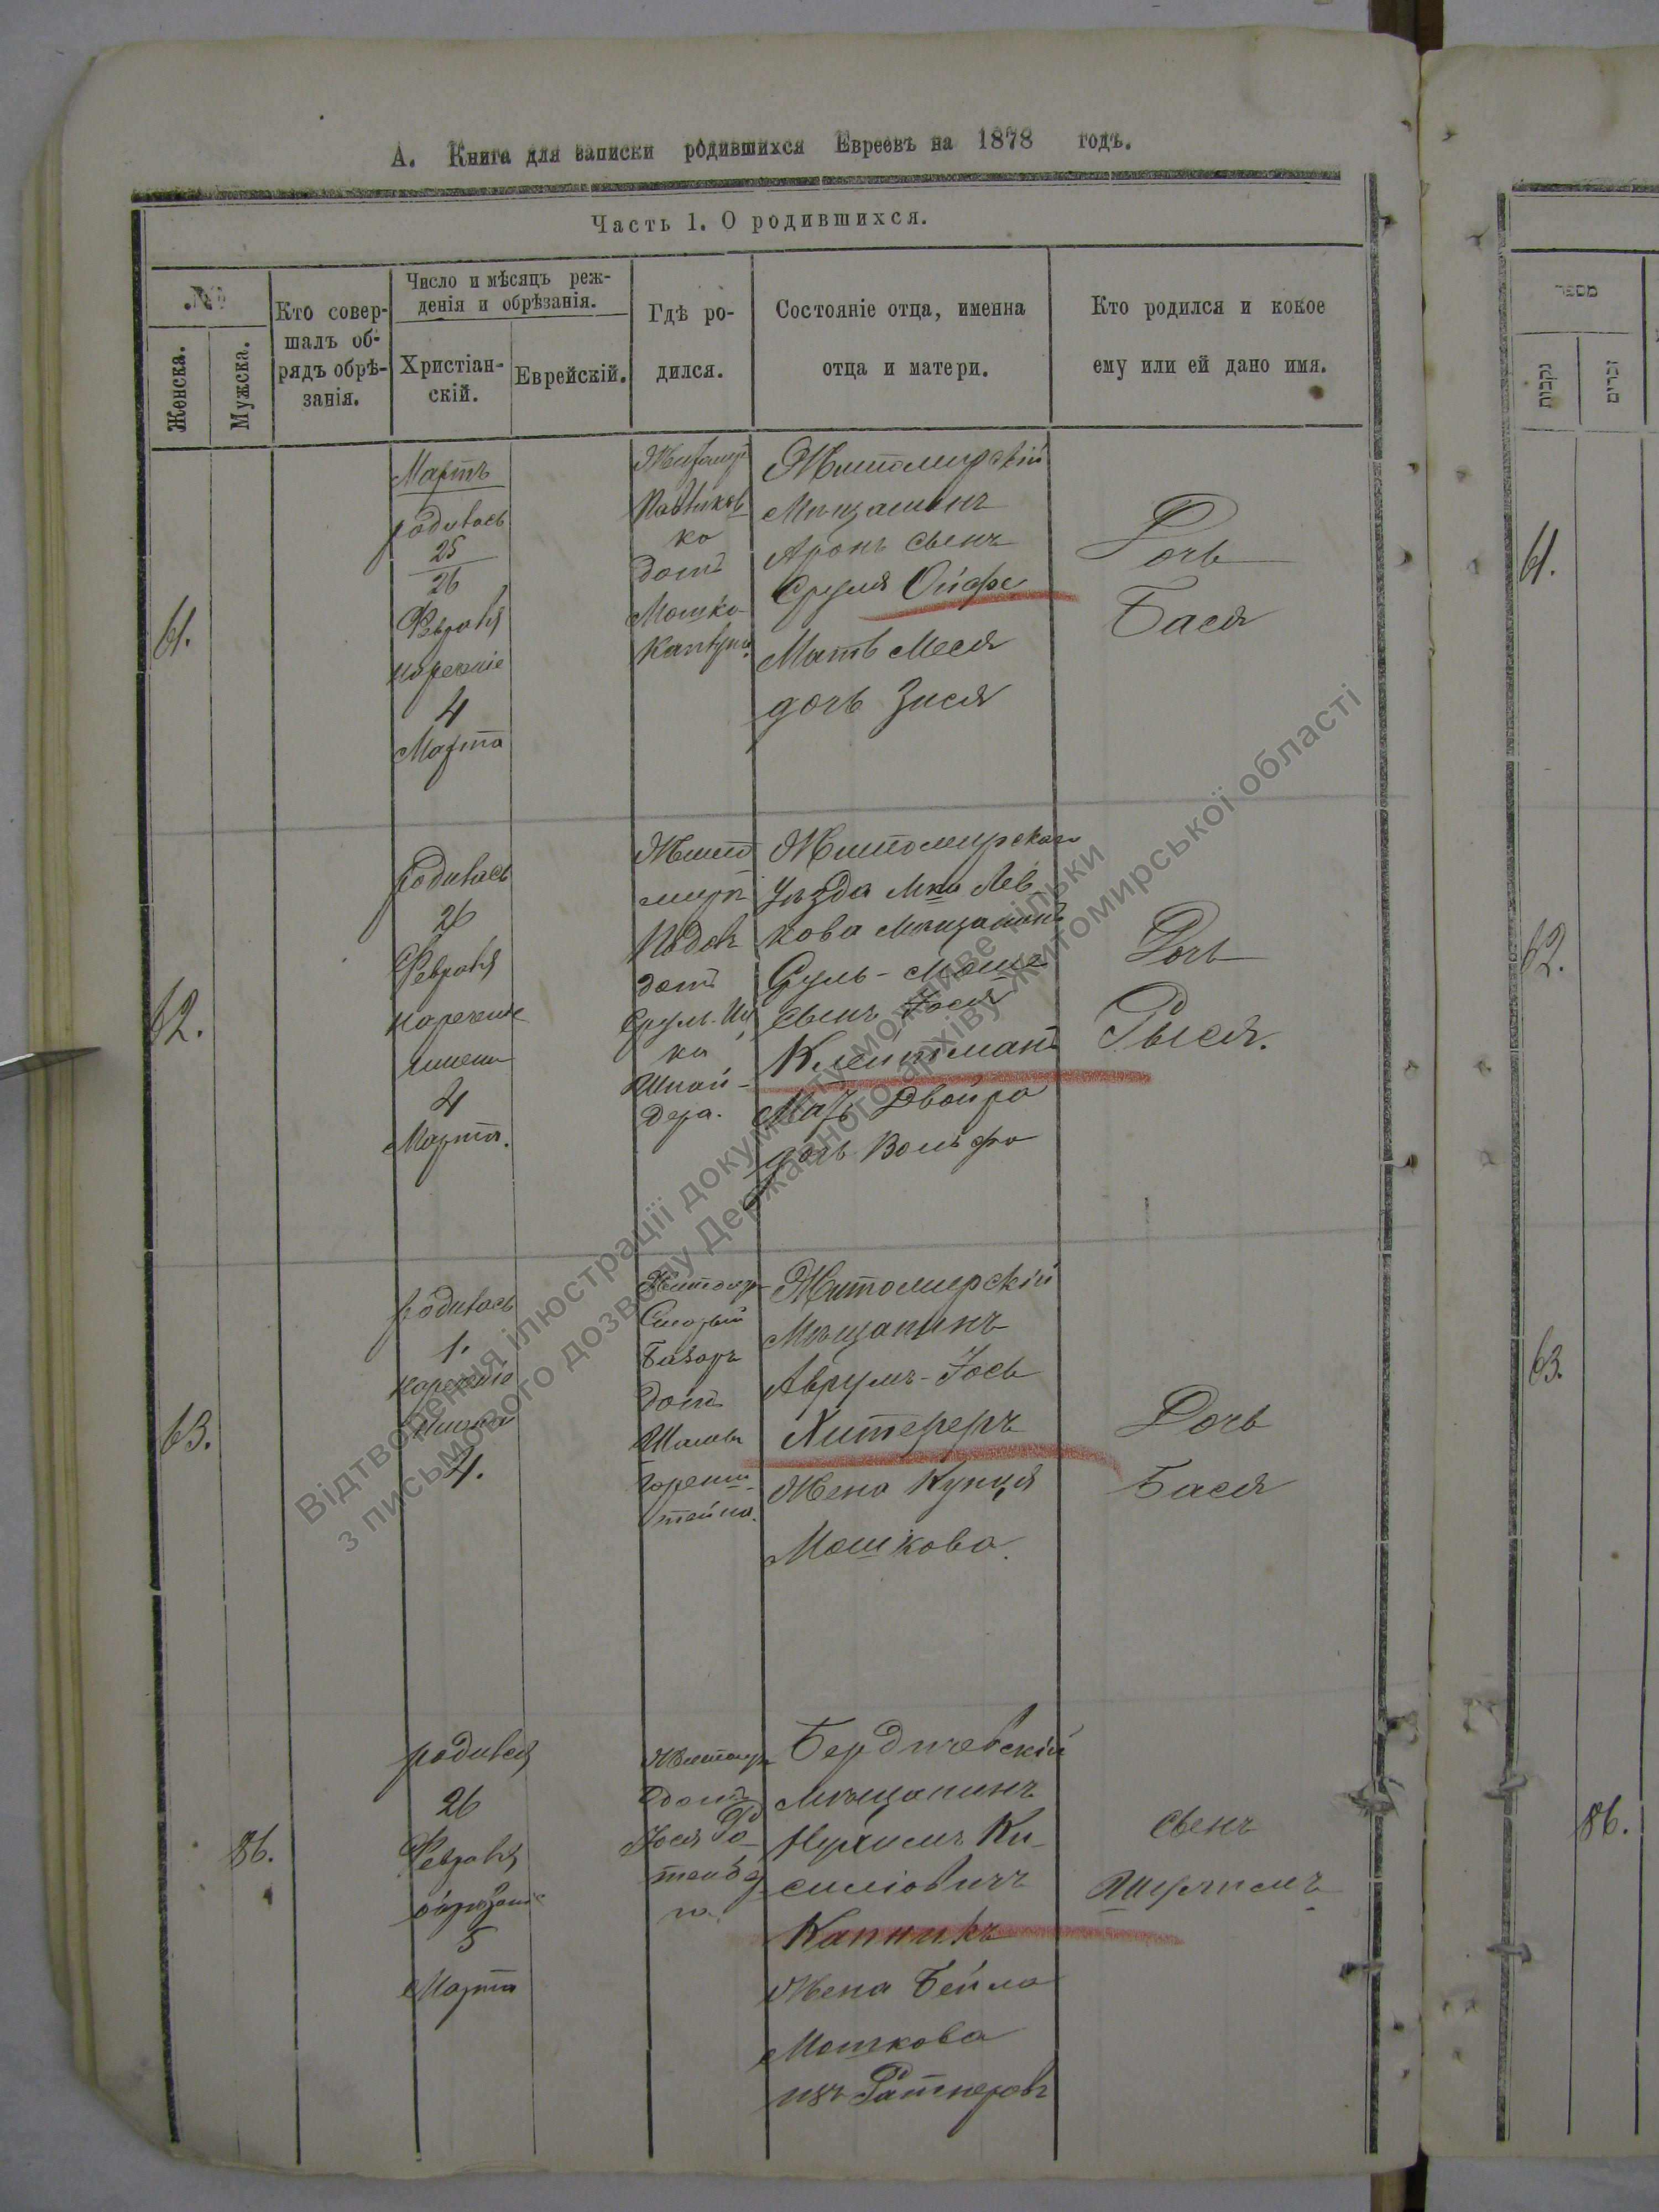 А. Книга для записки родившихся Евреевъ на 1878 годъ.
Часть 1. О родившихся.
№
Женска.
Мужска.
Кто совер-
шалъ об-
рядъ обрѣ-
занія.
Число и мѣсяцъ реж-
денія и обрѣзанія.
Христіан-
скій.
Еврейскій.
Гдѣ ро-
дился.
Состояніе отца, именна
отца и матери.
Кто родился и кокое
ему или ей дано имя.
61.
Мартъ
родилась
25
26
Февраля
наречение
4
Марта
ко
домъ
Мошка
Житомирскій
Мещанинъ
Аронъ сынъ
Сруля Ойфе
Мать Меся
дочь Зися
Дочь
Бася
62.
родилась
26
Февраля
наречение
имени
4
Марта.
Жито
миръ
Подол
домъ
Сруль-Иц
ка
Шнай-
дера.
Житомирскаго
Уѣзда Мка Лев
кова мѣщанинъ
Сруль-Моше
сынъ Іося
Клейтманъ
Мать Двойра
дочь Вольфа
Дочь
Рыся.
63.
родилась
1.
наречение
имени
4.
Житомир
Старый
Базаръ
домъ
Горен
штейна.
Житомирскій
Мѣщанинъ
Аврумъ-Іось
Хитереръ
Жена Купця
Мошкова.
Дочь
Бася
86.
родился
26
Февраля
обрѣзание
5
Марта
Житомир
домъ
Іося Ро
тенбер
га.
Бердичевскій
мѣщанинъ
Нухимъ Ки-
силіовичъ
Капникъ
Жена Бейла
Мошкова
изъ Ратнеровъ
сынъ
מספר
נקבות
זכרים
61.
62.
63.
86.
Відтворення ілюстрації документу можливе тільки
з письмового дозволу Державного архіву Житомирської області